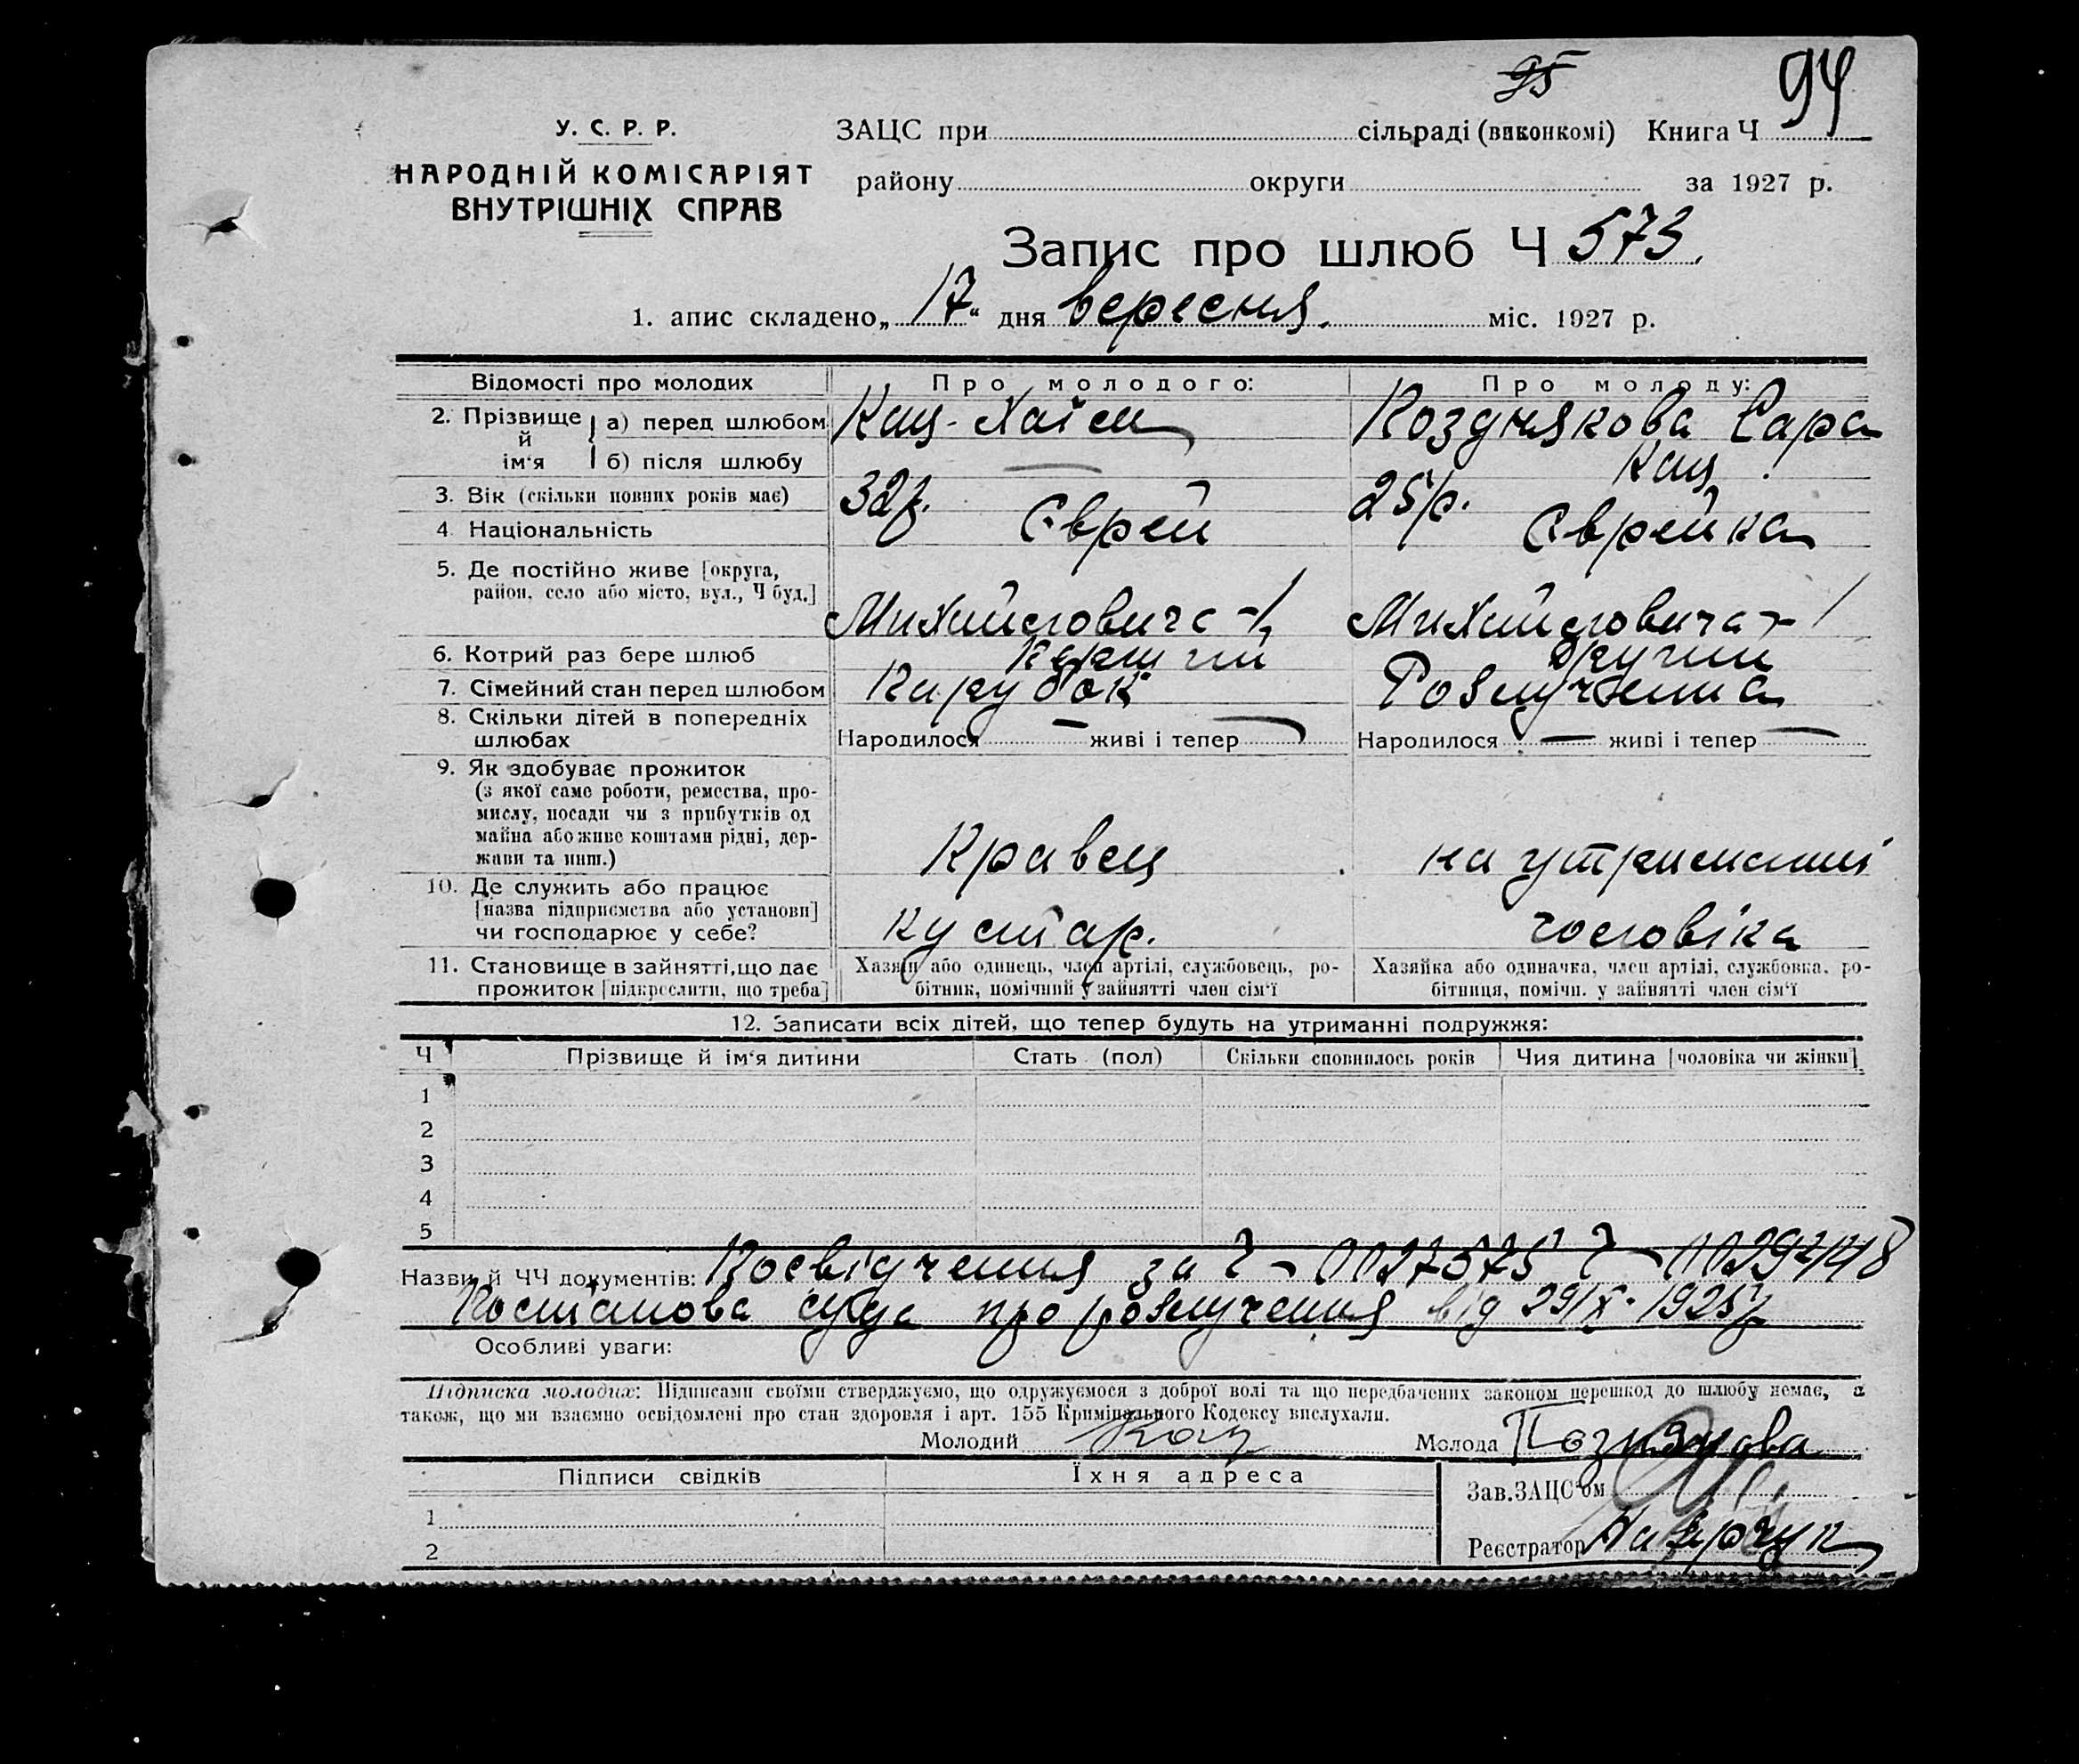 95
94
У. С. Р. Р.
НАРОДНІЙ КОМІСАРІЯТ
ВНУТРІШНІХ СПРАВ
ЗАЦС при сільраді (виконкомі) Книга Ч
району округи за 1927 р.
Запис про шлюб Ч 573.
1. апис складено „17“ дня вересня. міс. 1927 р.
Відомості про молодих Про молодого: Про молоду:
2. Прізвище й ім‘я а) перед шлюбом Кац-Хаїм Позднякова Сара
б) після шлюбу — Кац
3. Вік (скільки повних років має) 32р. 25р.
4. Національність Єврей Єврейка
5. Де постійно живе [округа,
район, село або місто, вул., Ч буд.]
6. Котрий раз бере шлюб перший другий
7. Сімейний стан перед шлюбом Парубок Розлучена
8. Скільки дітей в попередніх
шлюбах Народилося — живі і тепер — Народилося — живі і тепер —
9. Як здобуває прожиток
(з якої саме роботи, ремества, про-
мислу, посади чи з прибутків од
майна або живе коштами рідні, дер-
жави та инш.) Кравець на утриманні
10. Де служить або працює
[назва підприємства або установи]
чи господарює у себе? кустар. чоловіка
11. Становище в зайнятті, що дає
прожиток [підкреслити, що треба]
Хазяїн або одинець, член артілі, службовець, ро-
бітник, помічний у зайнятті член сім‘ї
Хазяйка або одиначка, член артілі, службовка, ро-
бітниця, помічн. у зайнятті член сім‘ї
12. Записати всіх дітей, що тепер будуть на утриманні подружжя:
Ч Прізвище й ім‘я дитини Стать (пол) Скільки сповнилось років Чия дитина [чоловіка чи жінки]
1
2
3
4
5
Назви й ЧЧ документів: Посвідчення за Ч-
Постанова суда про розлучення від 29/X-1925р
Особливі уваги:
Підписка молодих: Підписами своїми стверджуємо, що одружуємося з доброї волі та що передбачених законом перешкод до шлюбу немає, а
також, що ми взаємно освідомлені про стан здоровля і арт. 155 Кримінального Кодексу вислухали.
Молодий Кац Молода
Підписи свідків Їхня адреса
1
2
Зав. ЗАЦС‘ом
Реєстратор